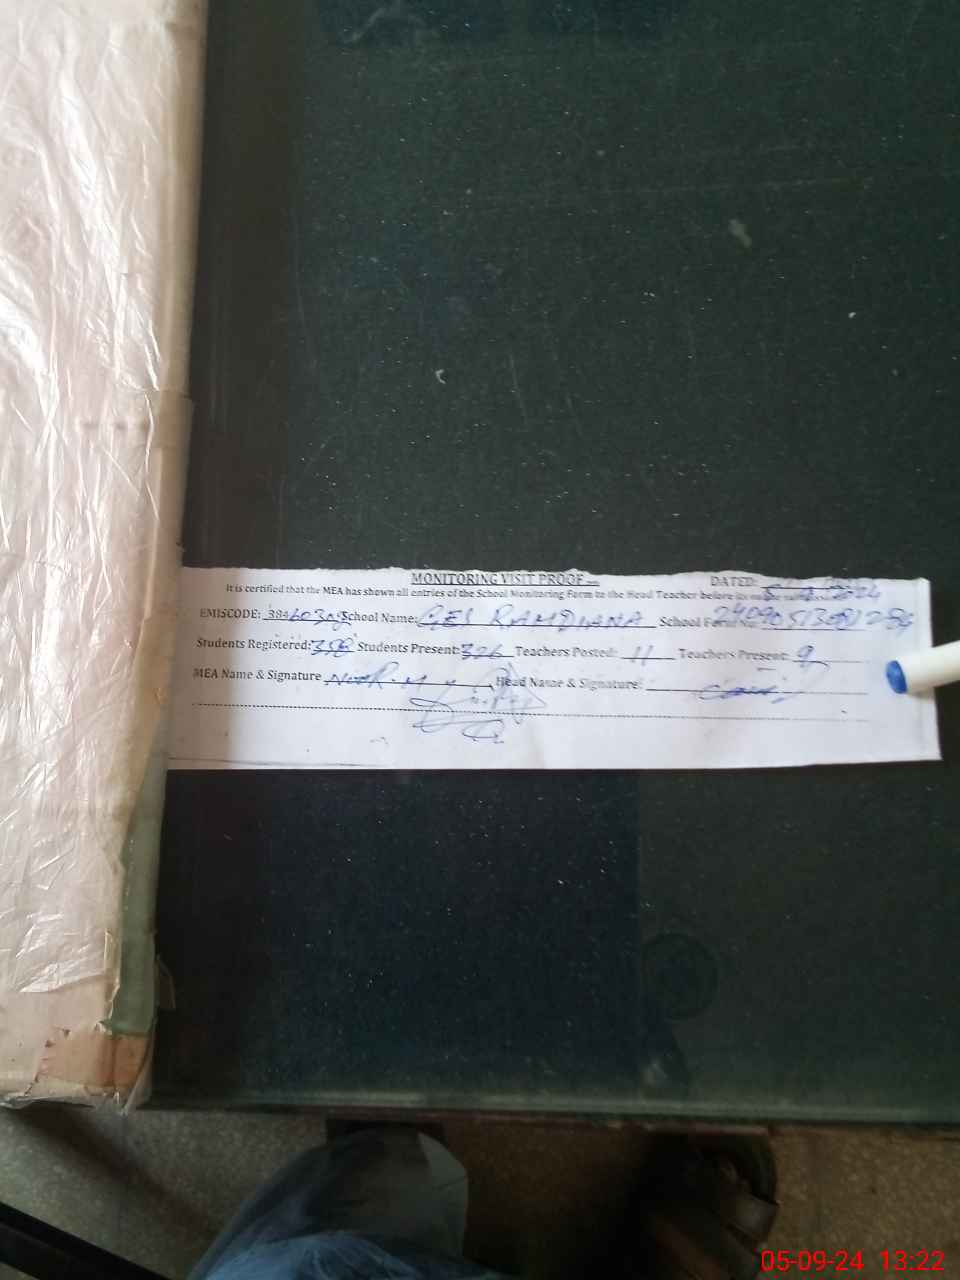 MONITORING VISIT PROOF
DATED: 5.9.2024
It is certified that the MEA has shown all entries of the School Monitoring Form to the Head Teacher before its
EMISCODE: School Name: GES RAMDIANA School Form No:
Students Registered: 358 Students Present: 326 Teachers Posted: 11 Teachers Present: 9
MEA Name & Signature Head Name & Signature:
05-09-24 13:22